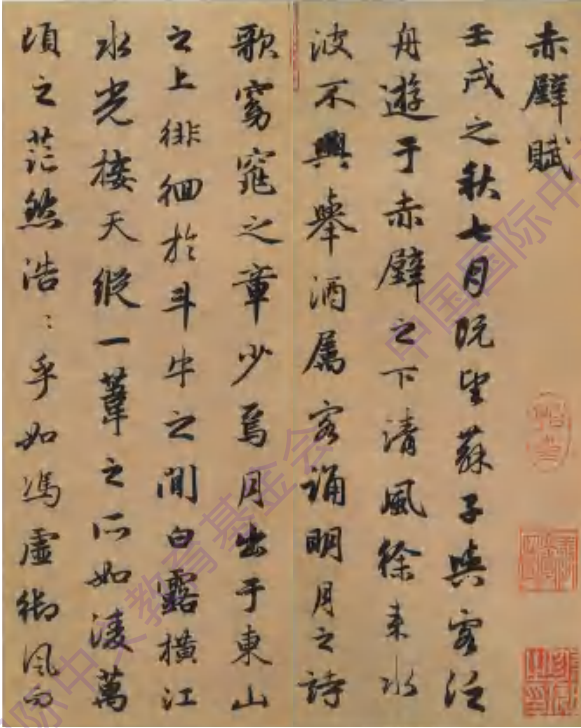 赤壁賦
壬戌之秋七月既望蘇子與客泛
舟遊于赤壁之下清風徐來水
波不興舉酒屬客誦明月之詩
歌窈窕之章少焉月出于東山
之上徘徊於斗牛之間白露橫江
水光接天縱一葦之所如淩萬
頃之茫然浩:乎如馮虛御風而
中国国际中
国际中文教育基金会